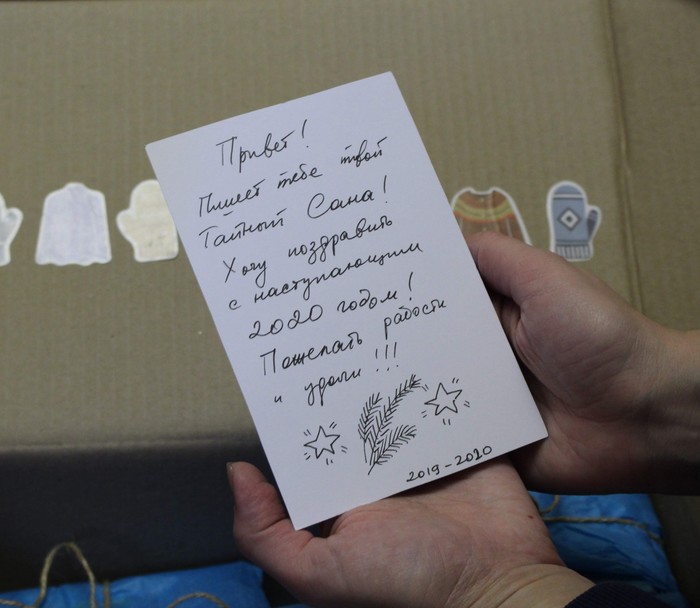 Привет!
Пишет тебе твой
Тайный Санта!
Хочу поздравить
с наступающим
2020 годом!
Пожелать радости
и удачи!!!
2019-2020